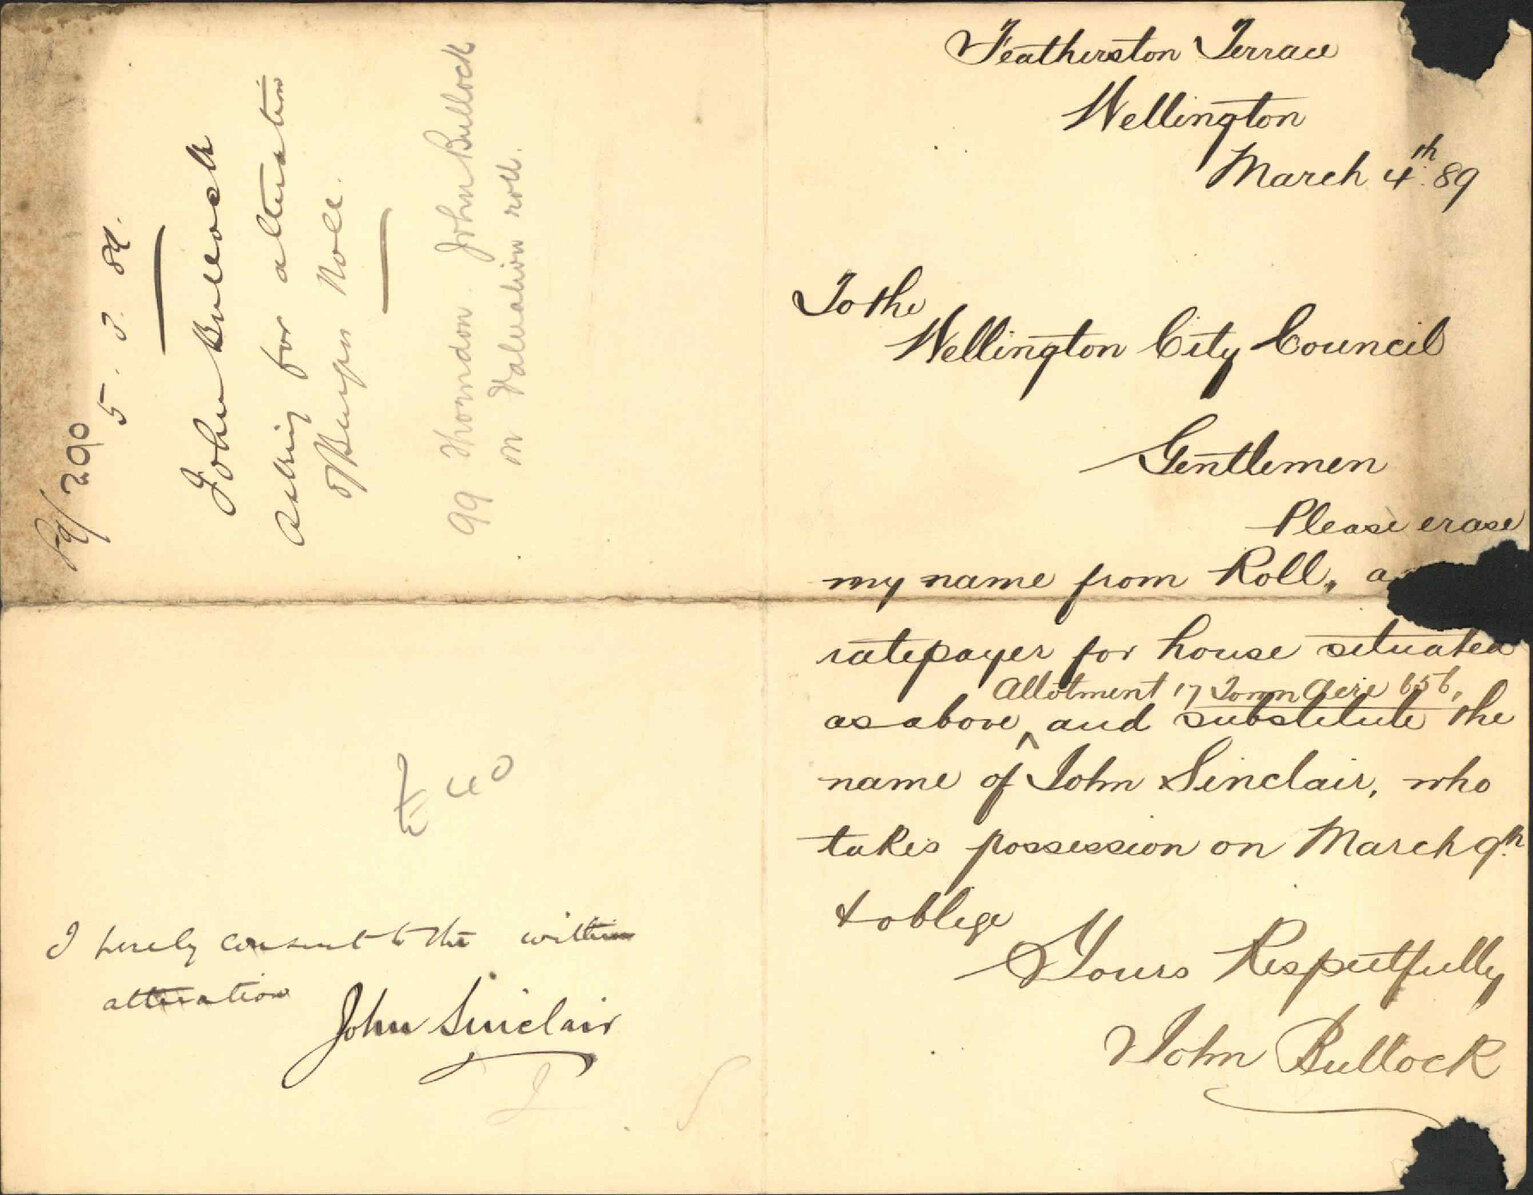 Featherston Terrace
Wellington
March 4th. 89
To the
Wellington City Council
Gentlemen
Please erase
my name from Roll, a
ratepayer for house situated
Allotment 17 Town Acre 656,
as above, and substitute the
name of John Sinclair, who
takes possession on March 9th.
& oblige
Yours Respectfully
John Bullock
89/290
5. 3. 89.
John Bullock
asking for alteration
of Burgess Roll.
99 Thorndon. John Bullock
on Valuation roll.
£ 40
I hereby consent to the within
alteration
John Sinclair